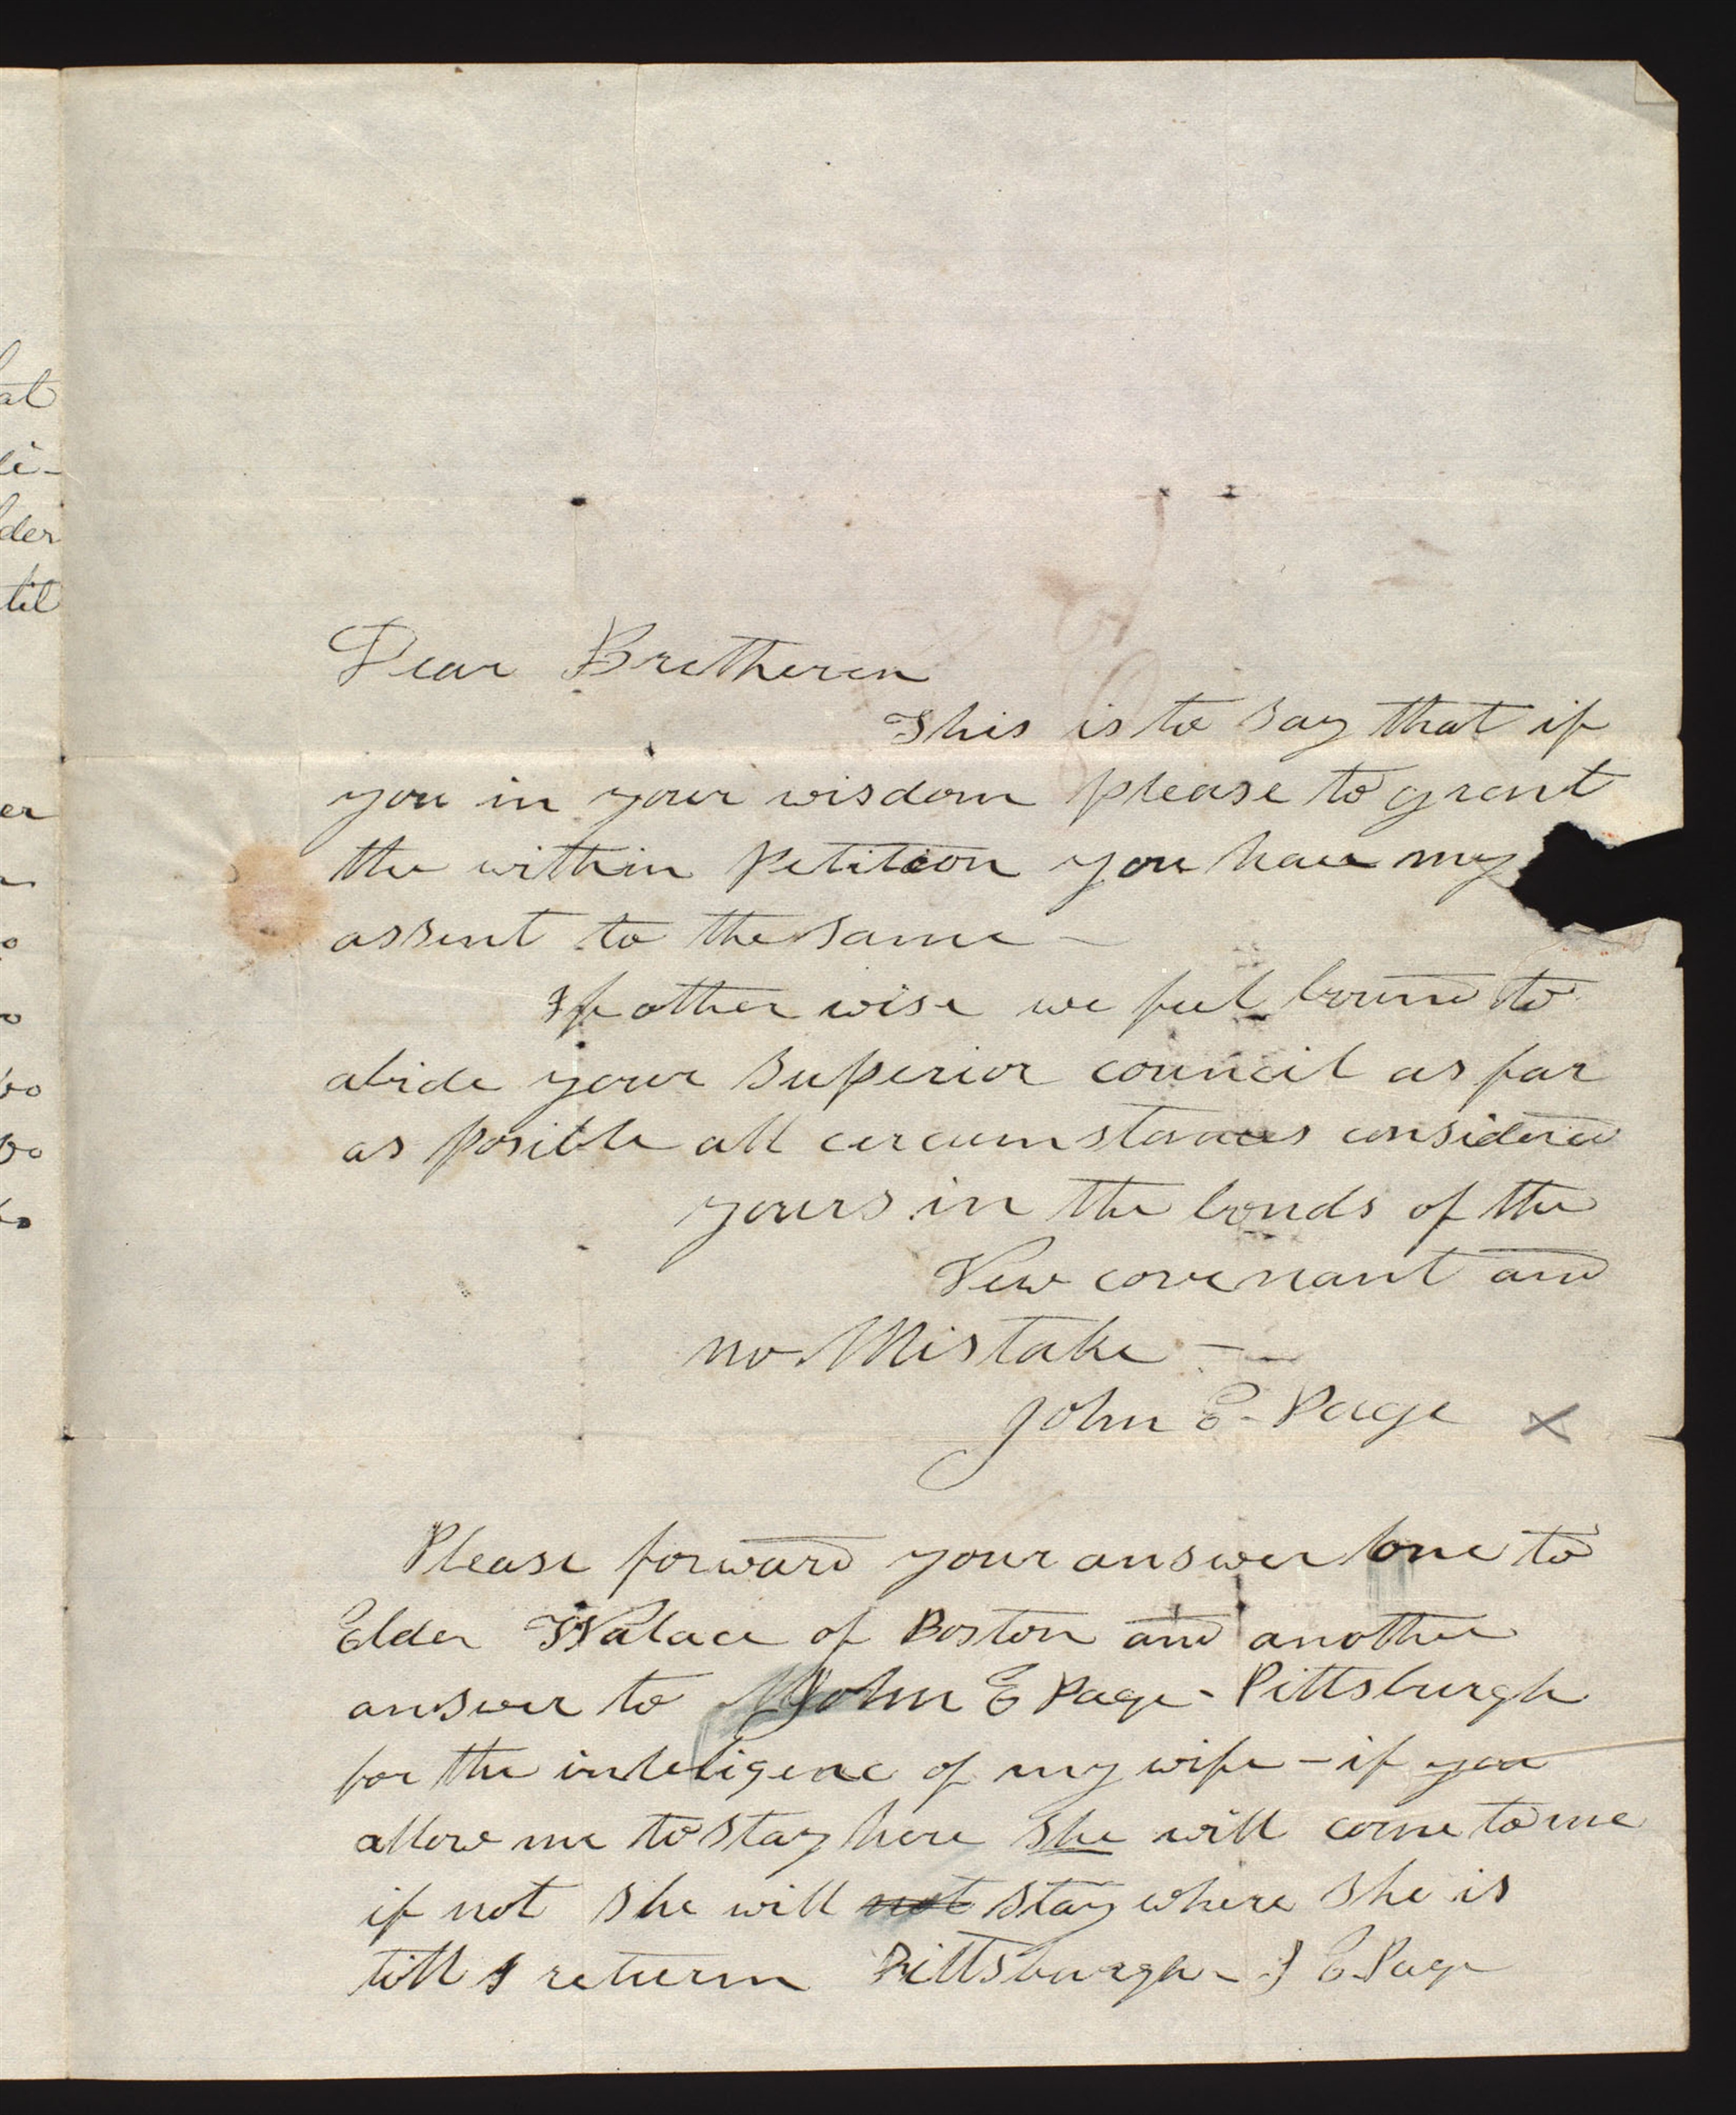 at
li-
lder
til
er
Dear Bretheren
This is to say that if
you in your wisdom please to grant
the within Petition you have my
assent to the same –
If other wise we feel bound to
abide your superior council as far
as posible all circumstances considered
yours in the bonds of the
New covenant and
no Mistake –
John E. Page x
Please forward your answer one to
Elder Walace of Boston and another
answer to John E Page - Pittsburgh
for the inteligenc of my wife – if you
allow me to stay here she will come to me
if not she will not stay where she is
till I return Pittsburgh – J E. Page